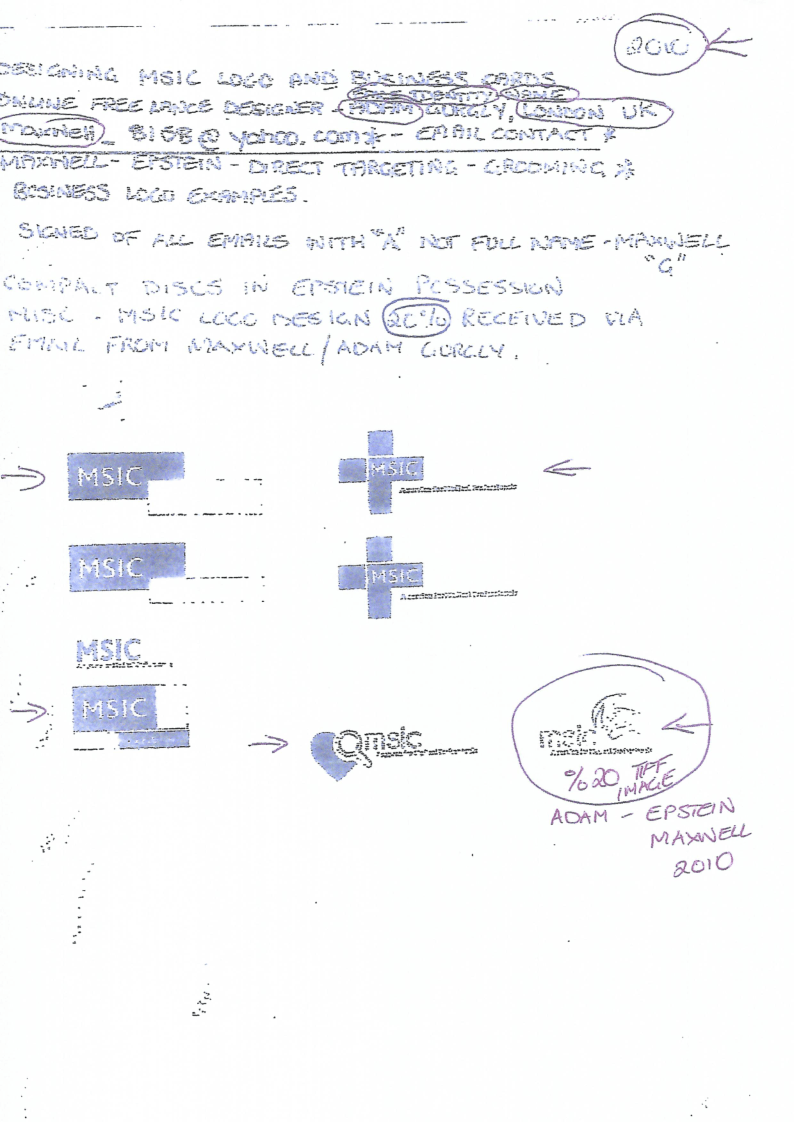 2010
DESIGNING MSIC LOGO AND BUSINESS CARDS
NAME
ONLINE FREE LANCE DESIGNER - ADAM GURGLY, LONDON UK
MAXWELL_ 8168@yahoo.com* - EMAIL CONTACT *
MAXWELL - EPSTEIN - DIRECT TARGETING - GROOMING *
BUSINESS LOGO EXAMPLES.
SIGNED OF ALL EMAILS WITH "A" NOT FULL NAME - MAXWELL
"G"
COMPACT DISCS IN EPSTEIN POSSESSION
MISC - MSIC LOGO DESIGN 20% RECEIVED VIA
EMAIL FROM MAXWELL/ADAM GURGLY.
MSIC
MSIC
MSIC
MSIC
MSIC
MSIC
msic
msic
%20 TIFF
IMAGE
ADAM - EPSTEIN
MAXWELL
2010